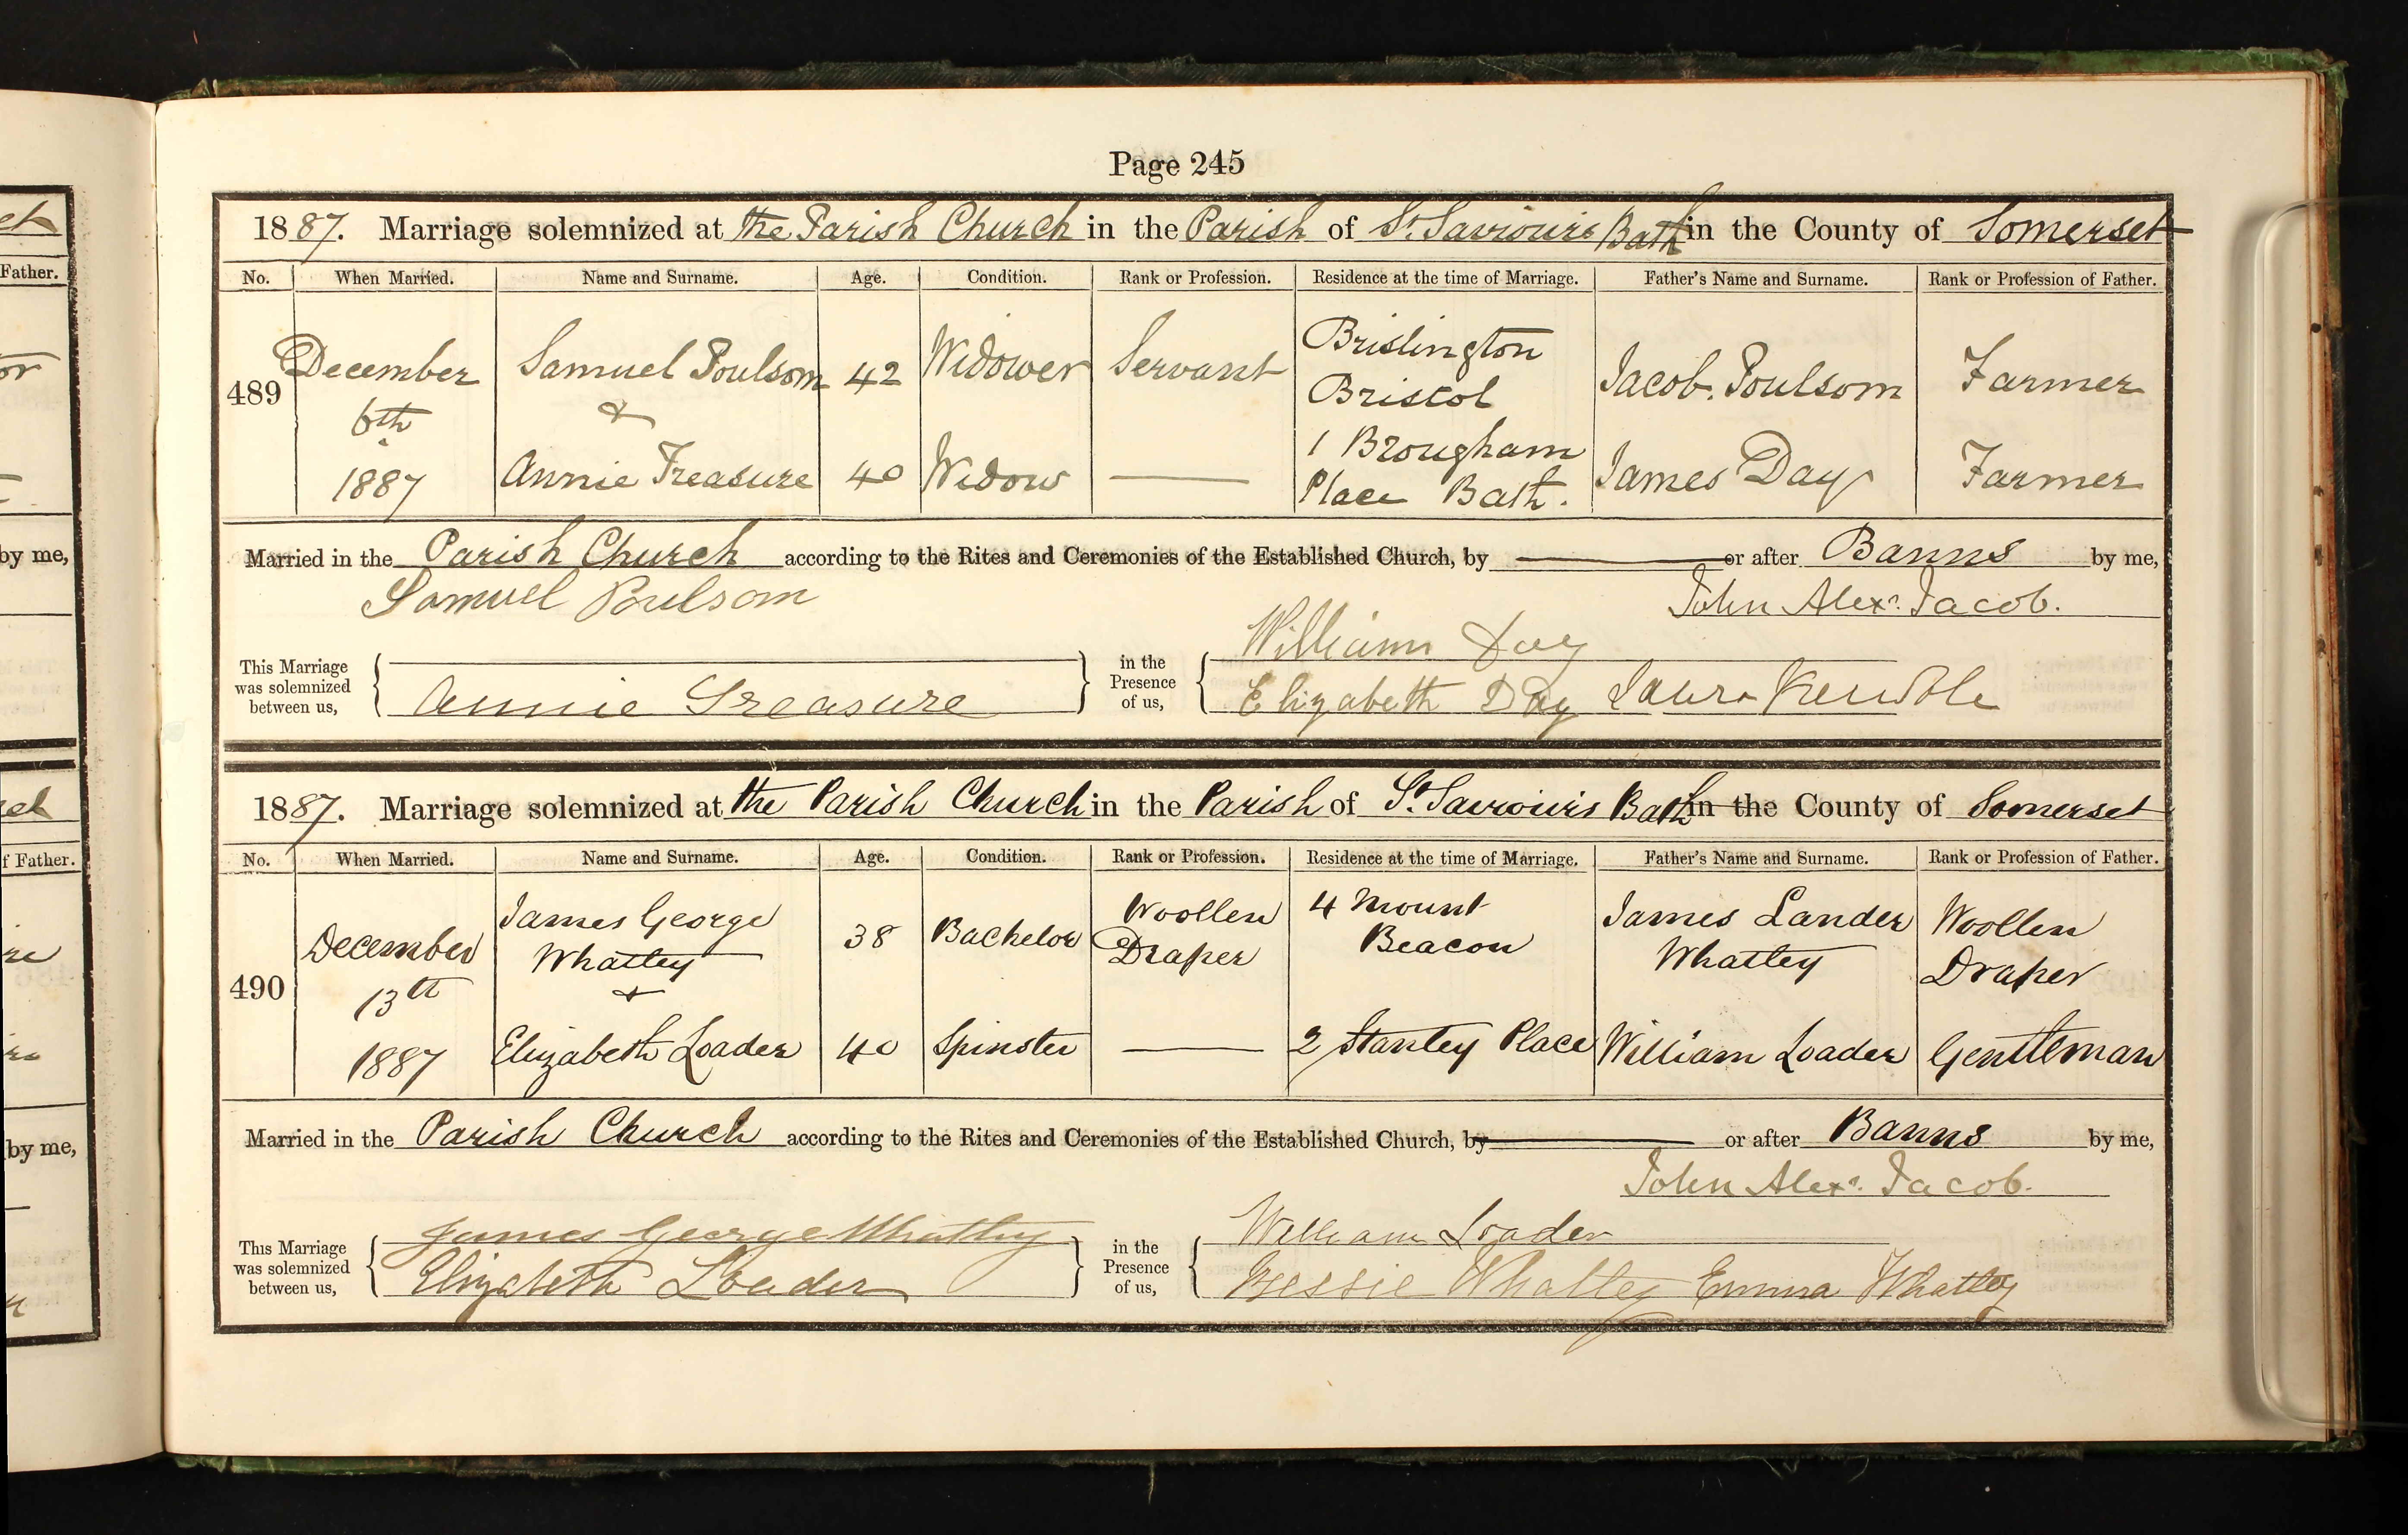 Page 245
1887. Marriage solemnized at the Parish Church in the Parish of St. Saviour's Bath in the County of Somerset
No. When Married. Name and Surname. Age. Condition. Rank or Profession. Residence at the time of Marriage. Father's Name and Surname. Rank or Profession of Father.
489 December 6th 1887 Samuel Poulsom 42 Widower Servant Brislington Bristol Jacob Poulsom Farmer
&
Annie Treasure 40 Widow — 1 Brougham Place Bath. James Day Farmer
Married in the Parish Church according to the Rites and Ceremonies of the Established Church, by — or after Banns by me,
John Alexr. Jacob.
This Marriage was solemnized between us, Samuel Poulsom Annie Treasure in the Presence of us, William Day Elizabeth Day Laura
1887. Marriage solemnized at the Parish Church in the Parish of St. Saviour's Bath in the County of Somerset
No. When Married. Name and Surname. Age. Condition. Rank or Profession. Residence at the time of Marriage. Father's Name and Surname. Rank or Profession of Father.
490 December 13th 1887 James George Whatley 38 Bachelor Woollen Draper 4 Mount Beacon James Lander Whatley Woollen Draper
&
Elizabeth Loader 40 Spinster — 2 Stanley Place William Loader Gentleman
Married in the Parish Church according to the Rites and Ceremonies of the Established Church, by — or after Banns by me,
John Alexr. Jacob.
This Marriage was solemnized between us, James George Whatley Elizabeth Loader in the Presence of us, William Loader Bessie Whatley Emma Whatley
Father.
by me,
f Father.
by me,